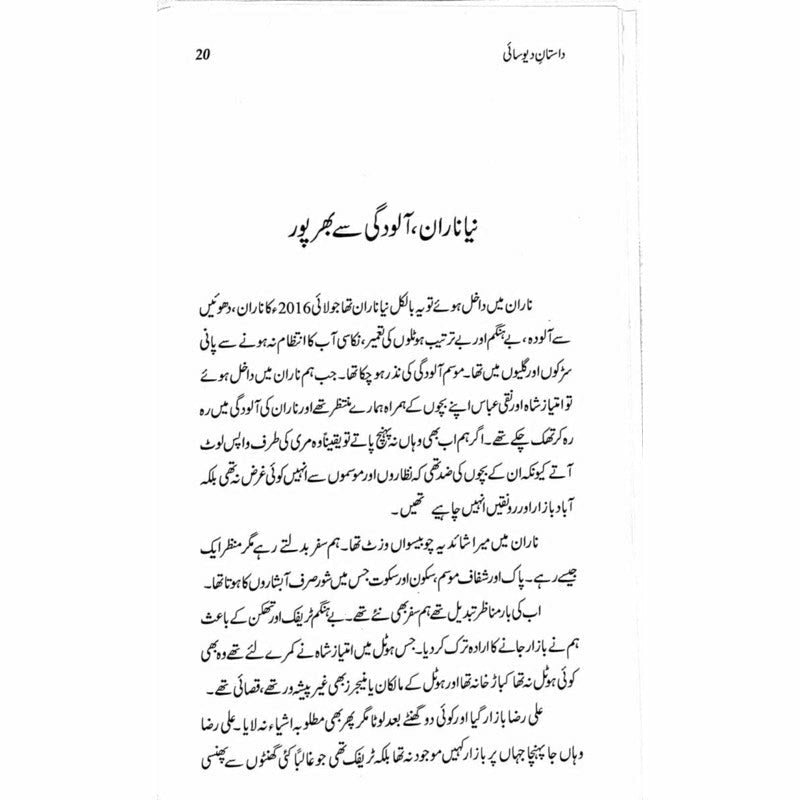 داستانِ دیوسائی 20
نیا ناران، آلودگی سے بھرپور
ناران میں داخل ہوئے تو یہ بالکل نیا ناران تھا جولائی 2016ء کا ناران، دھوئیں
سے آلودہ، بے ہنگم اور بے ترتیب ہوٹلوں کی تعمیر، نکاسی آب کا انتظام نہ ہونے سے پانی
سڑکوں اور گلیوں میں تھا۔ موسم آلودگی کی نذر ہو چکا تھا۔ جب ہم ناران میں داخل ہوئے
تو امتیاز شاہ اور نقی عباس اپنے بچوں کے ہمراہ ہمارے منتظر تھے اور ناران کی آلودگی میں رہ
رہ کر تھک چکے تھے۔ اگر ہم اب بھی وہاں نہ پہنچ پاتے تو یقیناً وہ مری کی طرف واپس لوٹ
آتے کیونکہ ان کے بچوں کی ضد تھی کہ نظاروں اور موسموں سے انہیں کوئی غرض نہ تھی بلکہ
آباد بازار اور رونقیں انہیں چاہیے تھیں۔
ناران میں میرا شائد یہ چوبیسواں وزٹ تھا۔ ہم سفر بدلتے رہے مگر منظر ایک
جیسے رہے۔ پاک اور شفاف موسم، سکون اور سکوت جس میں شور صرف آبشاروں کا ہوتا تھا۔
اب کی بار مناظر تبدیل تھے ہم سفر بھی نئے تھے۔ بے ہنگم ٹریفک اور تھکن کے باعث
ہم نے بازار جانے کا ارادہ ترک کر دیا۔ جس ہوٹل میں امتیاز شاہ نے کمرے لئے تھے وہ بھی
کوئی ہوٹل نہ تھا کباڑ خانہ تھا اور ہوٹل کے مالکان یا منیجرز بھی غیر پیشہ ور تھے، قصائی تھے۔
علی رضا بازار گیا اور کوئی دو گھنٹے بعد لوٹا مگر پھر بھی مطلوبہ اشیاء نہ لایا۔ علی رضا
وہاں جا پہنچا جہاں پر بازار کہیں موجود نہ تھا بلکہ ٹریفک تھی جو غالباً کئی گھنٹوں سے پھنسی